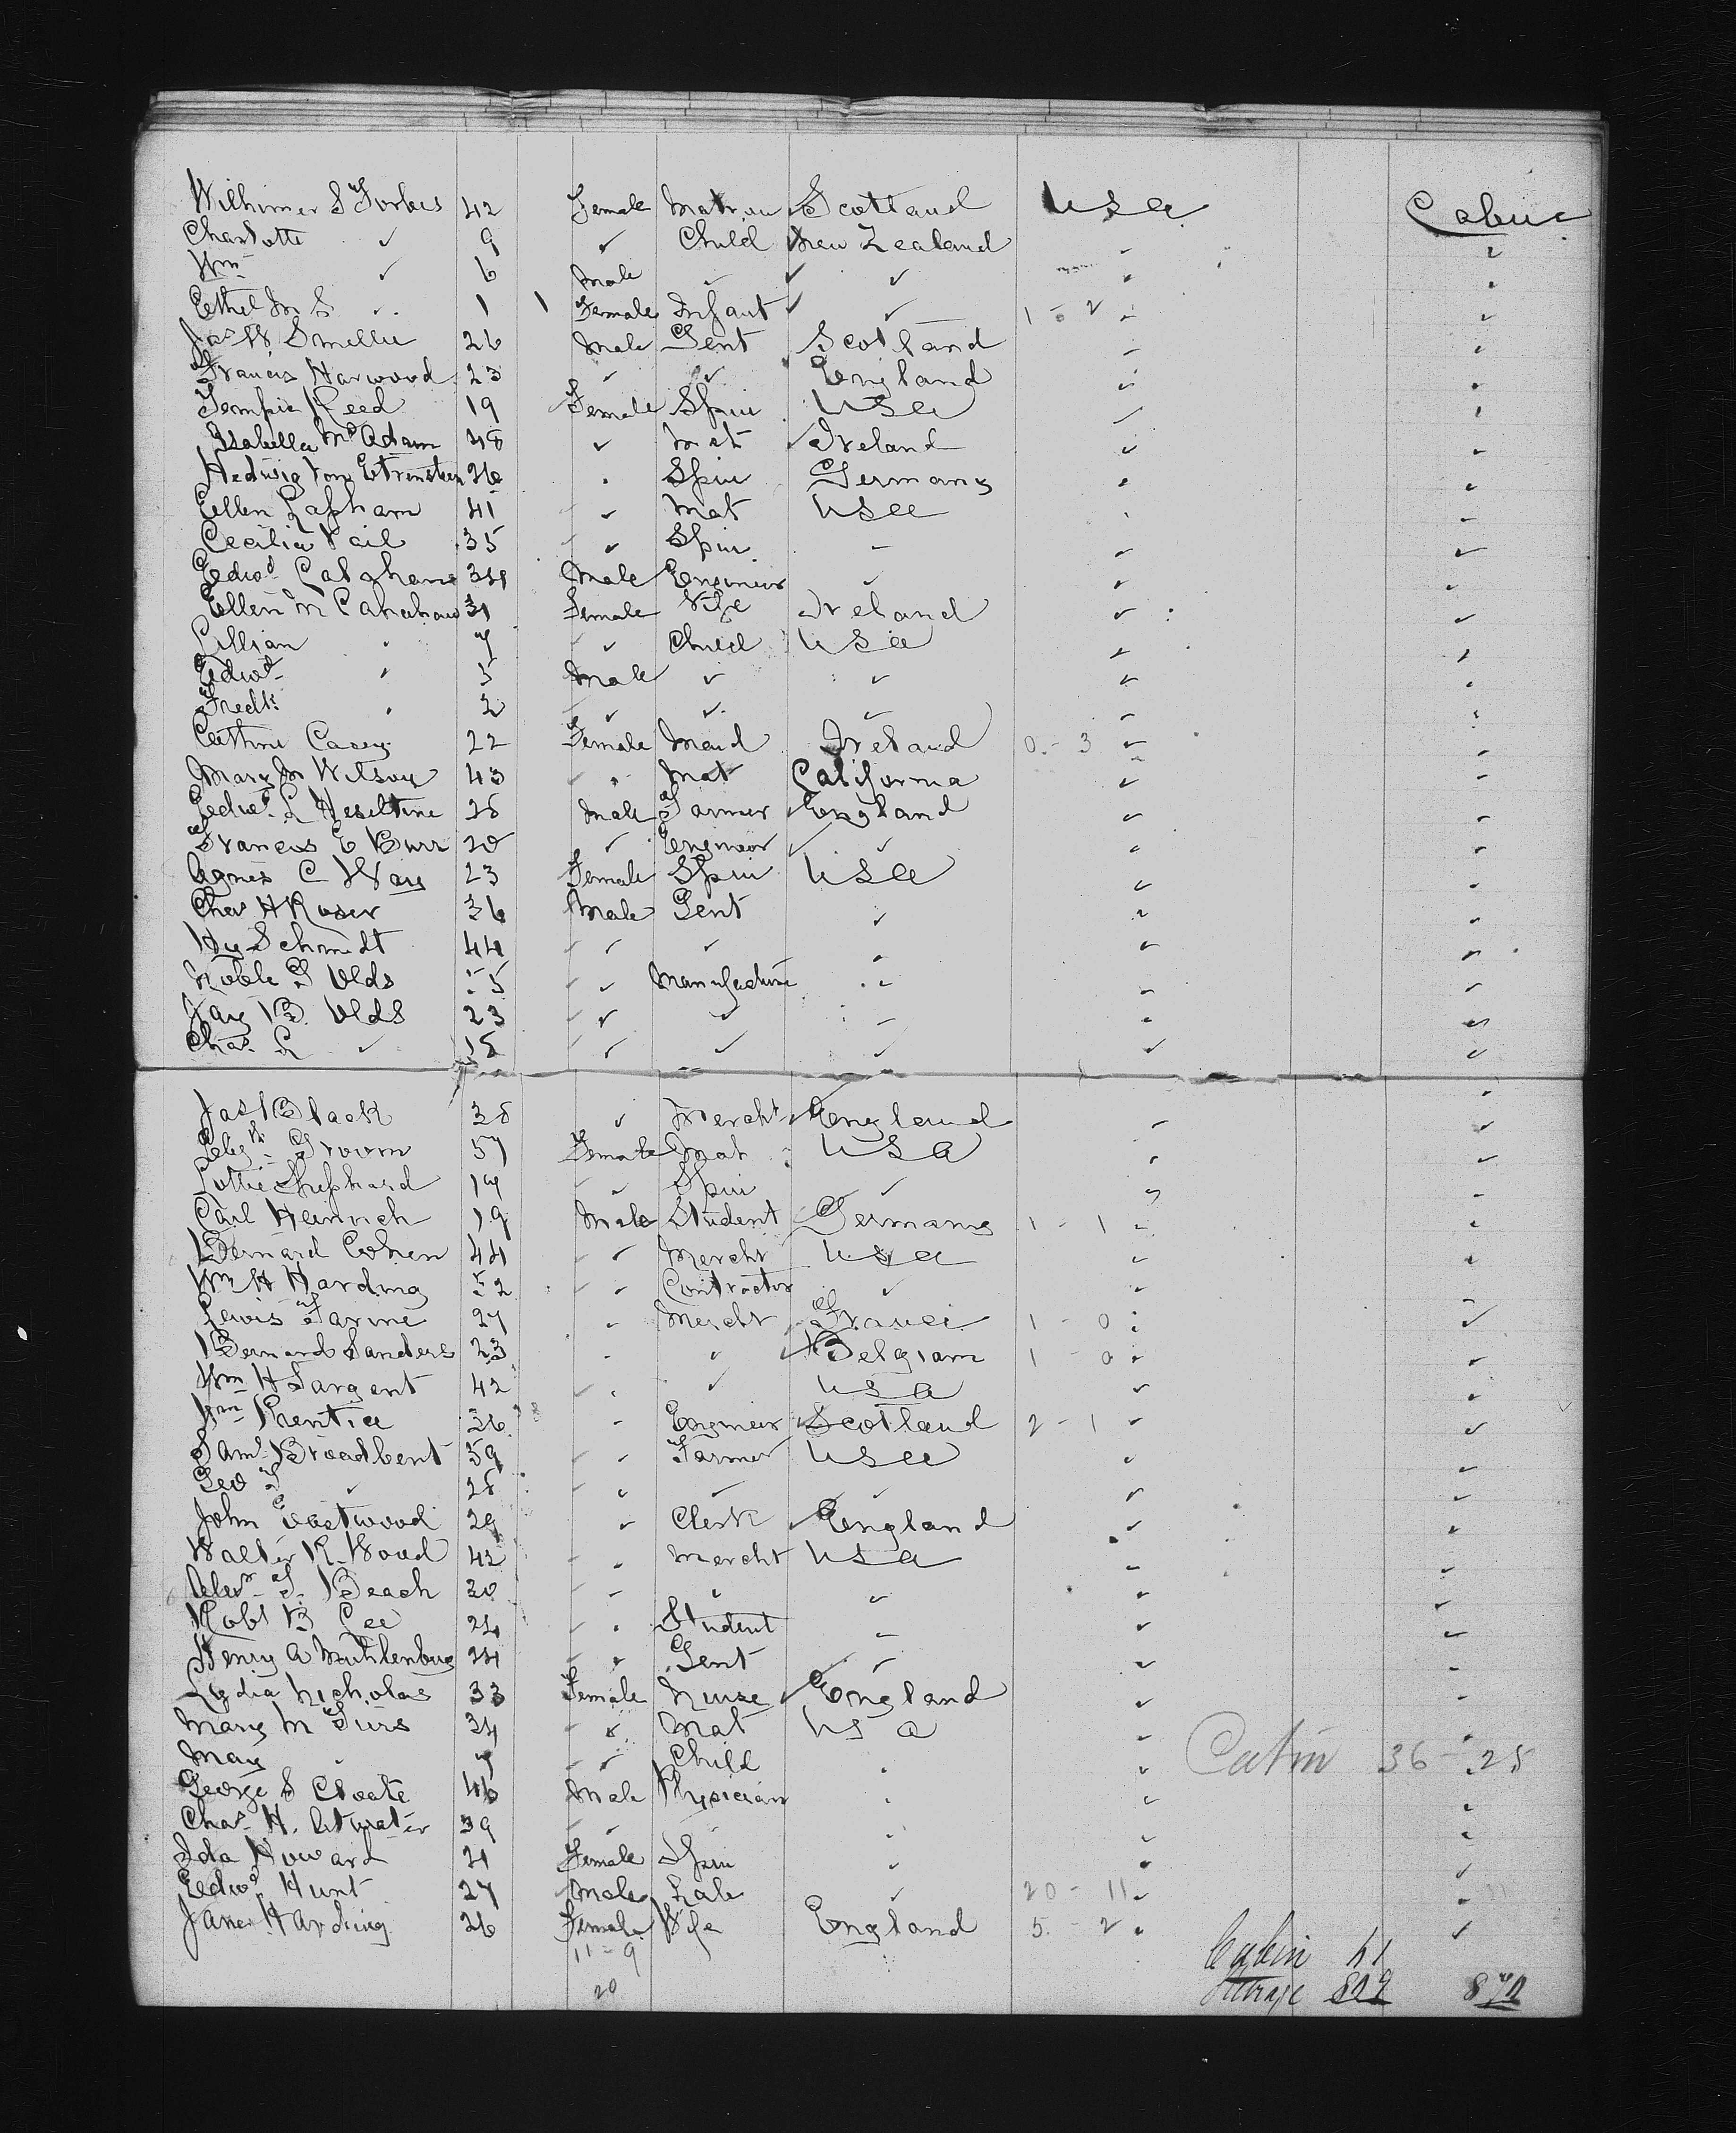 Wilhimer S Forbes 42 Female Matron Scotland USA Cabin
Charlotte ✓ 9 ✓ Child New Zealand
Wm ✓ 6 Male ✓ ✓
Ethel M S ✓ 1 1 Female Infant ✓ 1 - 2
Jas W Smellie 26 Male Gent Scotland
Francis Harwood 23 ✓ ✓ England
Tempie Reed 19 Female Spin USA
Isabella McAdam 48 ✓ Mat Ireland
Hedwig Von 26 Spin Germany
Ellen Lapham 41 ✓ Mat USA
Cecilia Vail 35 ✓ Spin
Edwd 34 Male Engineer ✓
Ellen M Calnahan 31 Female Wife Ireland
Lillian 7 ✓ Child USA
Edwd 5 Male ✓ ✓
Fredk 2 ✓ ✓ ✓
Cathne Casey 22 Female Maid Ireland 0 - 3
Mary M Wilson 43 Mat California
Edwd L Heseltine 28 Male Farmer England
Francis E Burr 20 ✓ Engineer ✓
Agnes C Way 23 Female Spin USA
Chas H Ruser 36 Male Gent ✓
Hy Schmidt 44 ✓ ✓
Noble G Olds 55 ✓ Manufacture
Jay B. Olds 23 ✓ ✓
Chas L ✓ 18 ✓ ✓ ✓
Jas Black 38 ✓ Mercht England
Elizth Groom 57 Female Mat USA
Lottie Shephard 19 Spin ✓
Carl Heinrich 19 Male Student Germany 1 - 1
Bernard Cohen 44 ✓ Mercht USA
Wm H Harding 52 Contractor ✓
Lewis Farine 27 Mercht France 1 - 0
Bernard Sanders 23 ✓ Belgiam 1 - 0
Wm H Sargent 42 ✓ USA
Wm Prentice 36 Engineer Scotland 2 - 1
Saml Broadbent 59 Farmer USA
Geo F ✓ 28 ✓ ✓
John Eastwood 29 ✓ Clerk England
Walter R. Wood 42 Mercht USA
Alexr F. Beach 30
Robt B Lee 24 Student
Henry A Muhlenburg 24 Gent
Lydia Nicholas 33 Female Nurse England
Mary M Furs 34 Mat USA
May 7 Child
Cabin 36 - 25
George S Choate 46 Male Physician
Chas. H. Atwater 39
Ida Howard 21 Female Spin
Edwd Hunt 27 Male Lab ✓ 20 - 11
Jane Harding 26 Female Wife England 5 - 2
11 - 9
Cabin 61
20 Steerage 809 870